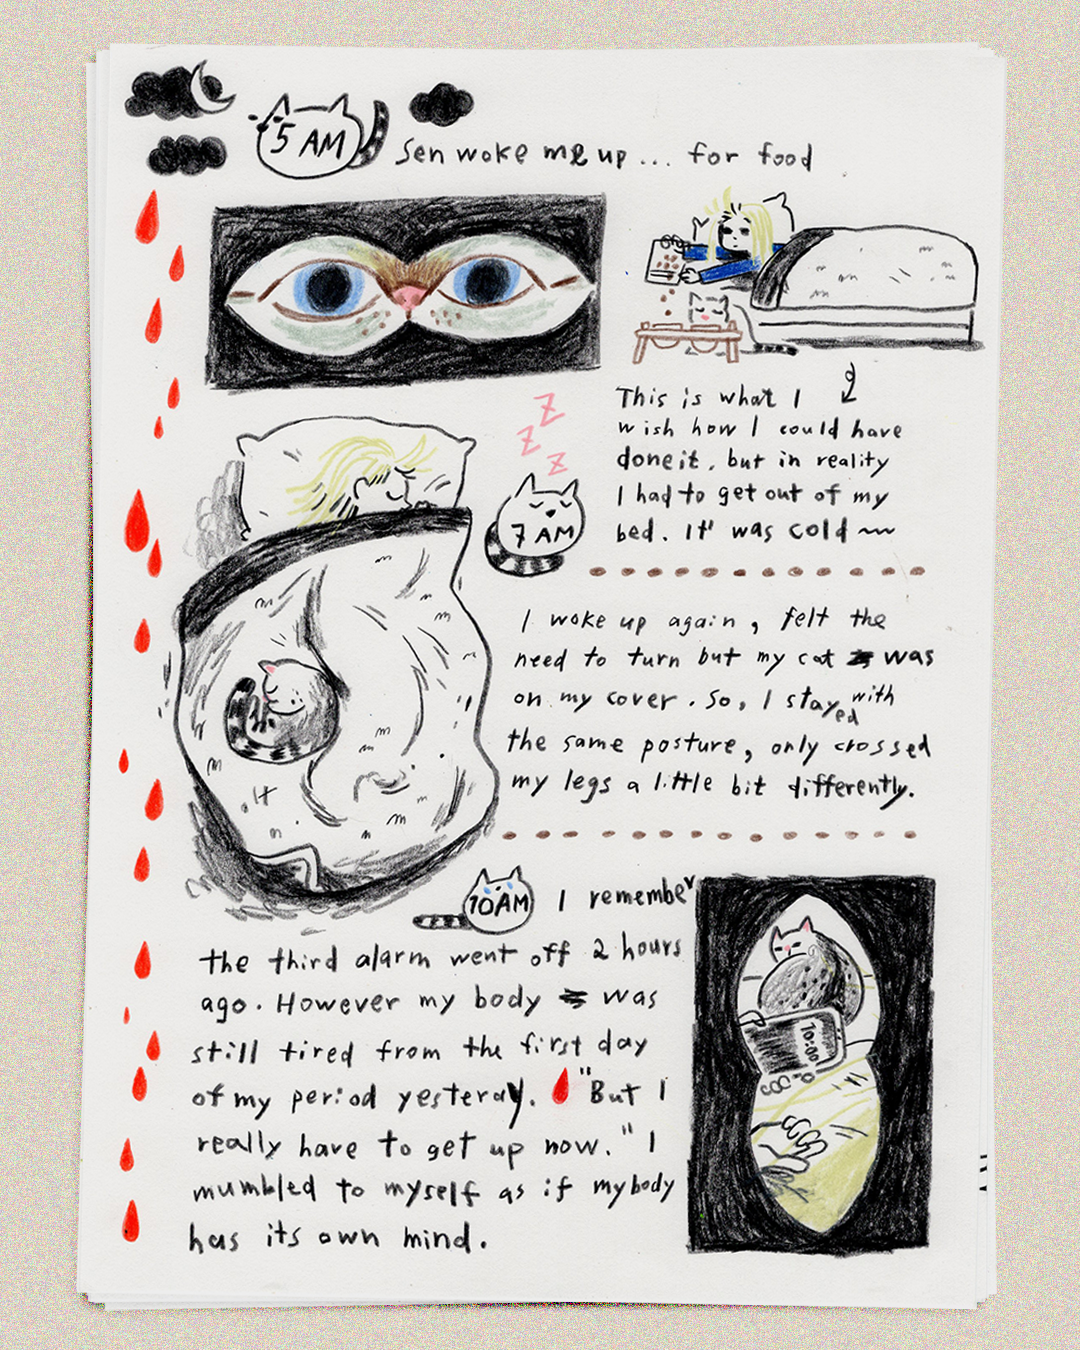 5 AM
Sen woke me up ... for food
This is what I
wish how I could have
done it, but in reality
I had to get out of my
bed. It was cold ~~
Z
Z
Z
7 AM
I woke up again, felt the
need to turn but my cat was
on my cover. So, I stayed with
the same posture, only crossed
my legs a little bit differently.
10AM
I remember
the third alarm went off 2 hours
ago. However my body was
still tired from the first day
of my period yesteray. "But I
really have to get up now." I
mumbled to myself as if my body
has its own mind.
10:00